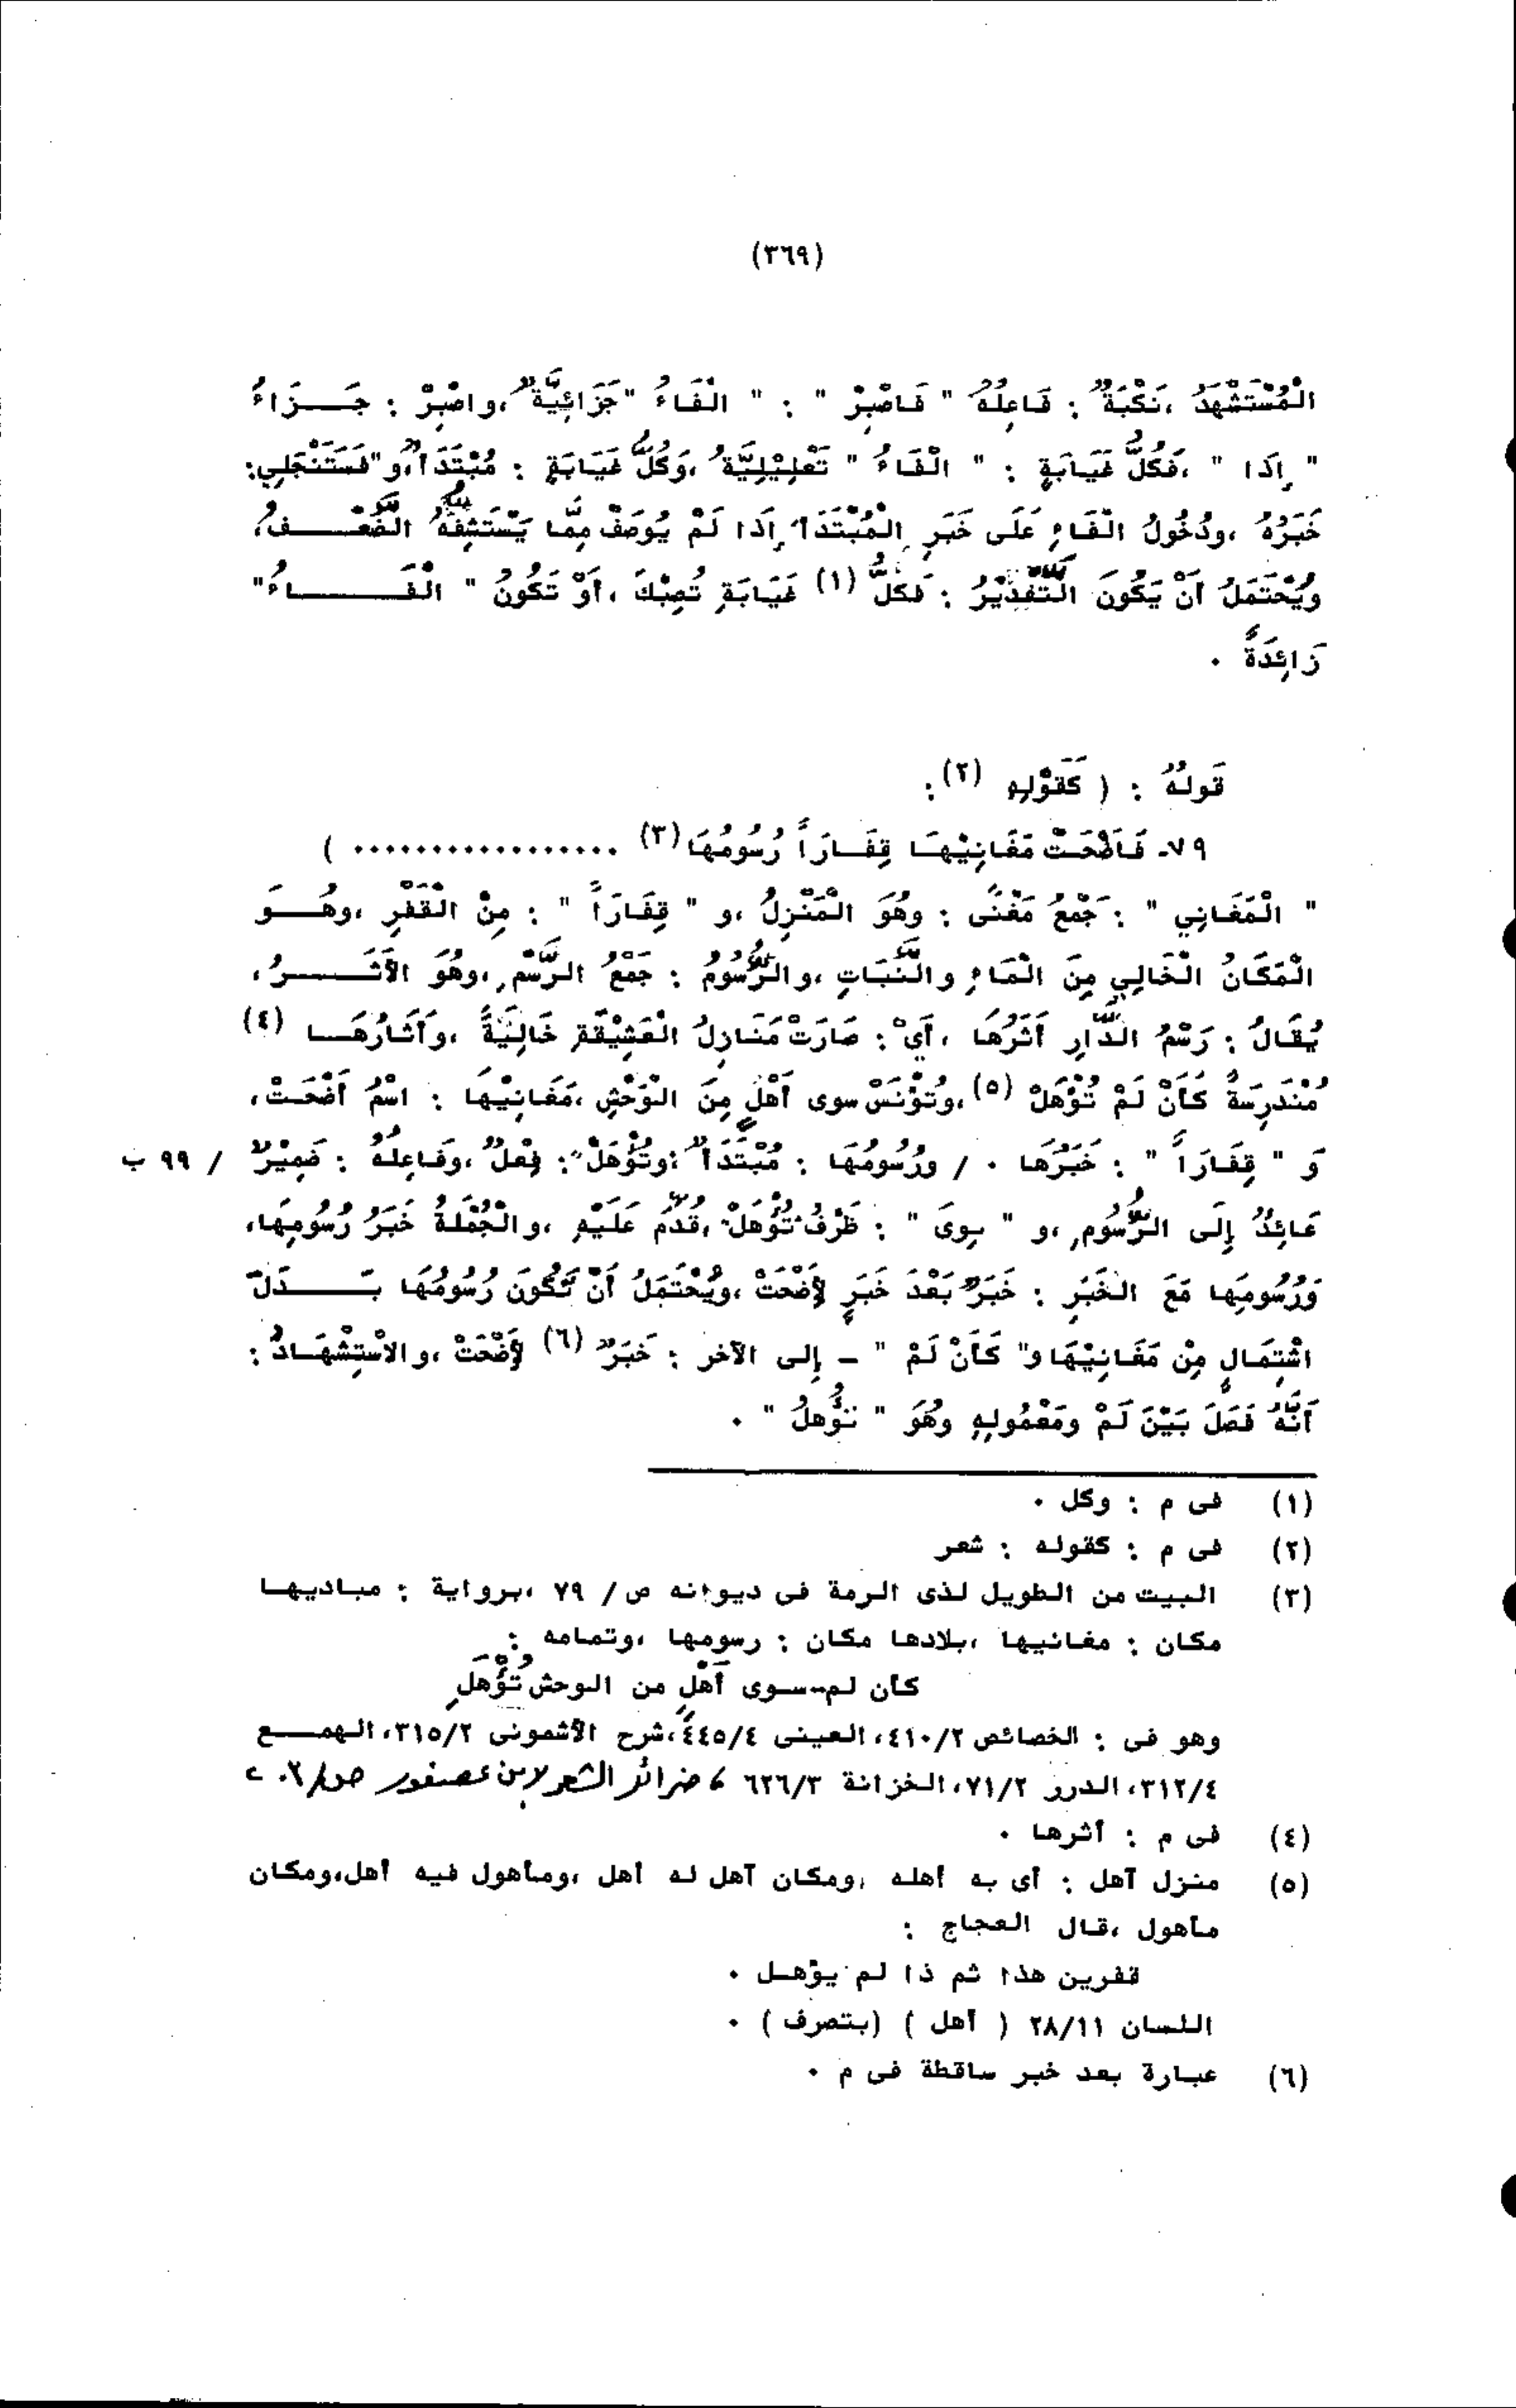 (٣٦٩)
الْمُسْتَشْهَدُ ،نَكْبَةٌ : فَاعِلُهُ " فَاصْبِرْ " : " الْفَاءُ "جَزَائِيَّةٌ ،واصْبِرْ : جَزَاءُ
" إِذَا " ،فَكُلُّ غَيَابَةٍ : " الْفَاءُ " تَعْلِيْلِيَّةٌ ،وَكُلُّ غَيَابَةٍ : مُبْتَدَأٌ،وَ"فَسَتَنْجَلِي:
خَبَرُهُ ،ودُخُولُ الْفَاءِ عَلَى خَبَرِ الْمُبْتَدَأ إِذَا لَمْ يُوصَفْ مِمَّا يَسْتَشِفُّهُ الضَّعْفُ،
ويُحْتَمَلُ أَنْ يَكُونَ التَّقْدِيْرُ : فَكُلُّ (١) غَيَابَةٍ تُصِبْكَ ،أَوْ تَكُونُ " الْفَاءُ"
زَائِدَةً .
قَولُهُ : ( كَقَوْلِهِ (٢):
٧٩- فَأَضْحَتْ مَغَانِيْهَا قِفَاراً رُسُومُهَا (٣) .................. )
" الْمَغَانِي " : جَمْعُ مَغْنًى : وهُوَ الْمَنْزِلُ ،و " قِفَاراً " : مِنْ الْقَفْرِ ،وهُوَ
الْمَكَانُ الْخَالِي مِنَ الْمَاءِ والنَّبَاتِ ،والرُّسُومُ : جَمْعُ الرَّسْمِ ،وهُوَ الأَثَرُ،
يُقَالُ : رَسْمُ الدَّارِ أَثَرُهَا ، أَيْ : صَارَتْ مَنَازِلُ الْعَشِيْقَةِ خَالِيَةً ،وَآثَارُهَا (٤)
مُنْدَرِسَةً كَأَنْ لَمْ تُؤْهَلْ (٥) ،وتُؤْنَسْ سوى أَهْلٍ مِنَ الْوَحْشِ ،مَغَانِيْهَا : اسْمُ أَضْحَتْ،
وَ " قِفَاراً " : خَبَرُهَا . / ورُسُومُهَا : مُبْتَدَأٌ ؛وتُؤْهَلْ": فِعْلٌ ،وفَاعِلُهُ : ضَمِيْرٌ / ٩٩ ب
عَائِدٌ إِلَى الرُّسُومِ ،و " سِوىَ " : ظَرْفُ تُؤْهَلْ ،قُدِّمَ عَلَيْهِ ،والْجُمْلَةُ خَبَرُ رُسُومِهَا،
وَرُسُومِهَا مَعَ الخَبَرِ : خَبَرٌ بَعْدَ خَبَرٍ لِأَضْحَتْ ،ويُحْتَمَلُ أَنْ تَكُونَ رُسُومُهَا بَدَلَ
اشْتِمَالٍ مِنْ مَغَانِيْهَا و" كَأَنْ لَمْ " - إلى الآخر : خَبَرٌ (٦) لِأَضْحَتْ ،والاسْتِشْهَادُ :
أَنَّهُ فَصَلَ بَيْنَ لَمْ ومَعْمُولِهِ وهُوَ " تُؤْهلُ " .
(١) فى م : وكل .
(٢) فى م : كقوله : شعر
(٣) البيت من الطويل لذى الرمة فى ديوانه ص/ ٧٩ ،برواية : مباديها
مكان : مغانيها ،بلادها مكان : رسومها ،وتمامه :
كأن لم-سوى أَهْلٍ من الوحش تُؤْهَلِ
وهو فى : الخصائص ٤١٠/٢، العينى ٤٤٥/٤،شرح الأشمونى ٣١٥/٢، الهمع
٣١٢/٤، الدرر ٧١/٢، الخزانة ٦٢٦/٣ ، ضرائر الشعر لابن عصفور
(٤) فى م : أثرها .
(٥) منزل آهل : أى به أهله ،ومكان آهل له أهل ،ومأهول فيه أهل،ومكان
مأهول ،قال العجاج :
قفرين هذا ثم ذا لم يؤهل .
اللسان ٢٨/١١ ( أهل ) (بتصرف ) .
(٦) عبارة بعد خبر ساقطة فى م .